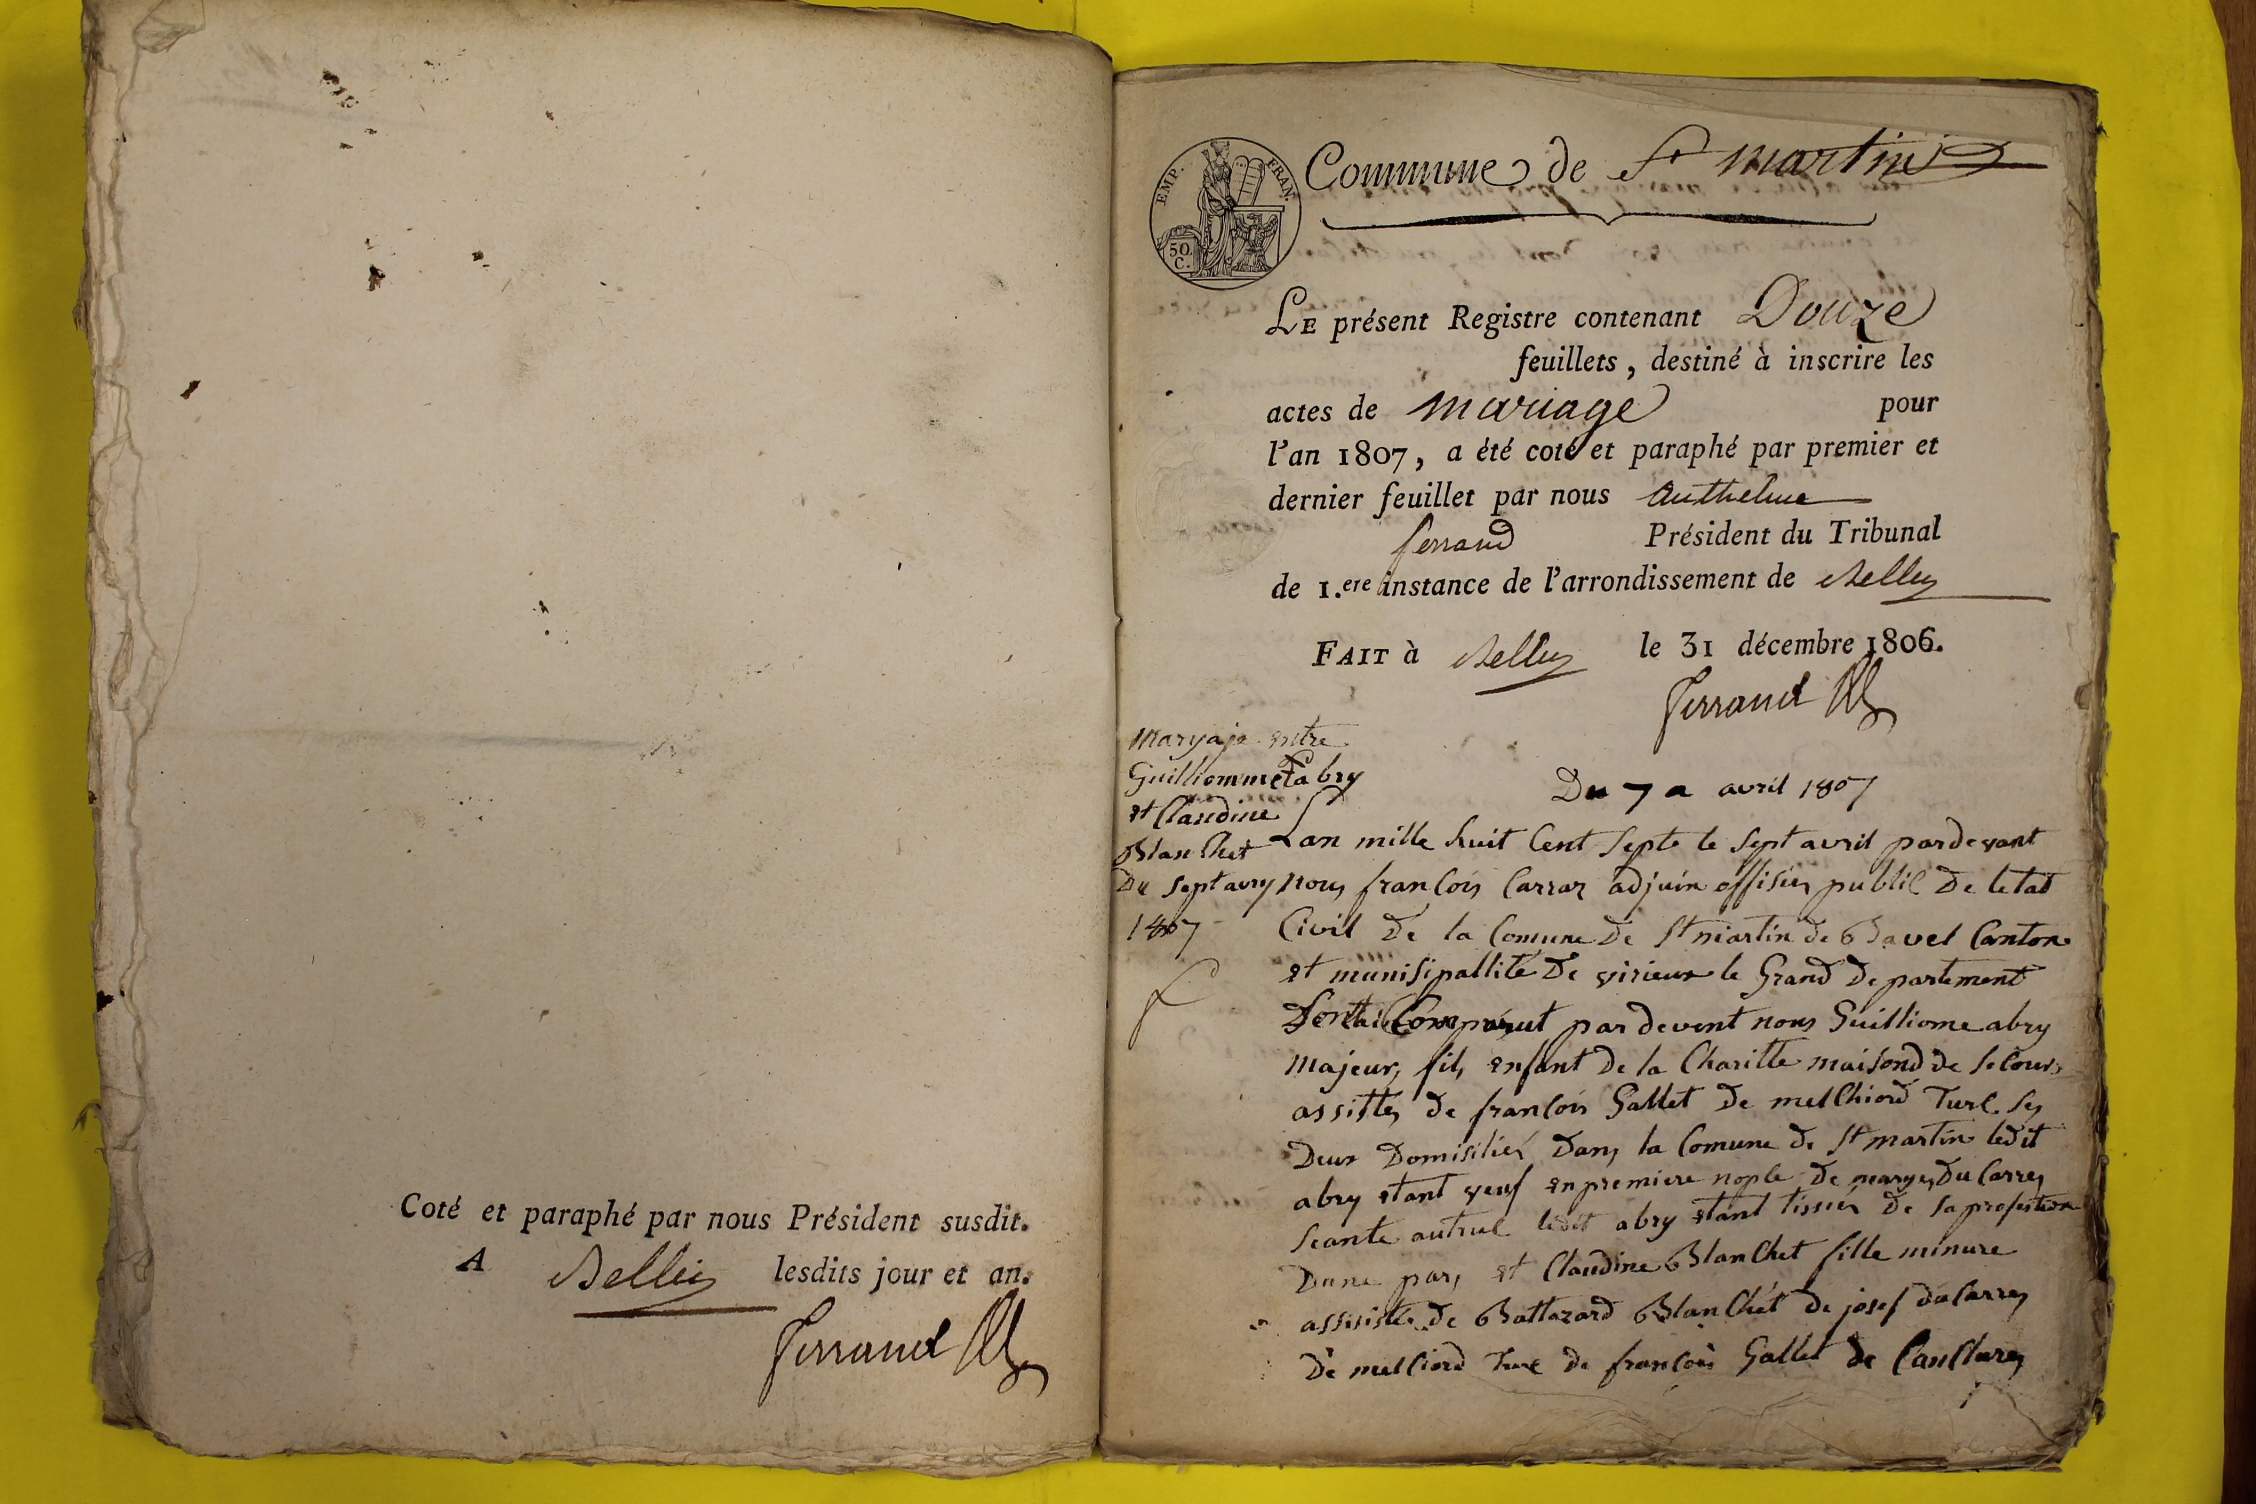 Coté et paraphé par nous Président susdit.
A Belley lesdits jour et an.
Ferrand
EMP. FRAN.
50 C.
Commune de St martin
LE présent Registre contenant Douze
feuillets, destiné à inscrire les
actes de mariage pour
l'an 1807, a été coté et paraphé par premier et
dernier feuillet par nous Anthelme
ferrand Président du Tribunal
de 1.ere instance de l'arrondissement de Belley
FAIT à Belley le 31 décembre 1806.
Ferrand
maryaje entre
Guilliomme abry
et Claudine
Blanchet
Du sept avry
1807
Du 7 a avril 1807
Lan mille huit Cent septe le sept avril pardevant
nous francois Carraz adjuin offisier publiC De letat
Civil De la Comune De St martin de Bavel Canton
et munisipallité De virieux le Grand Departement
De Comparut par devent nous Guilliome abry
majeur fils enfant de la Charitte maisond de seCours
assittés de francois Gallet De melChiord TurC ses
Deux Domisiliés Dans la Comune de St martin ledit
abry etant veuf en premiere nople De Du Carrey
ledit abry etant tissier De sa profestion
Dune par, et Claudine BlanChet fille minure
assisiste De Baltazard BlanChet De josef duCarrey
De melCiord TurC de francois Gallet de